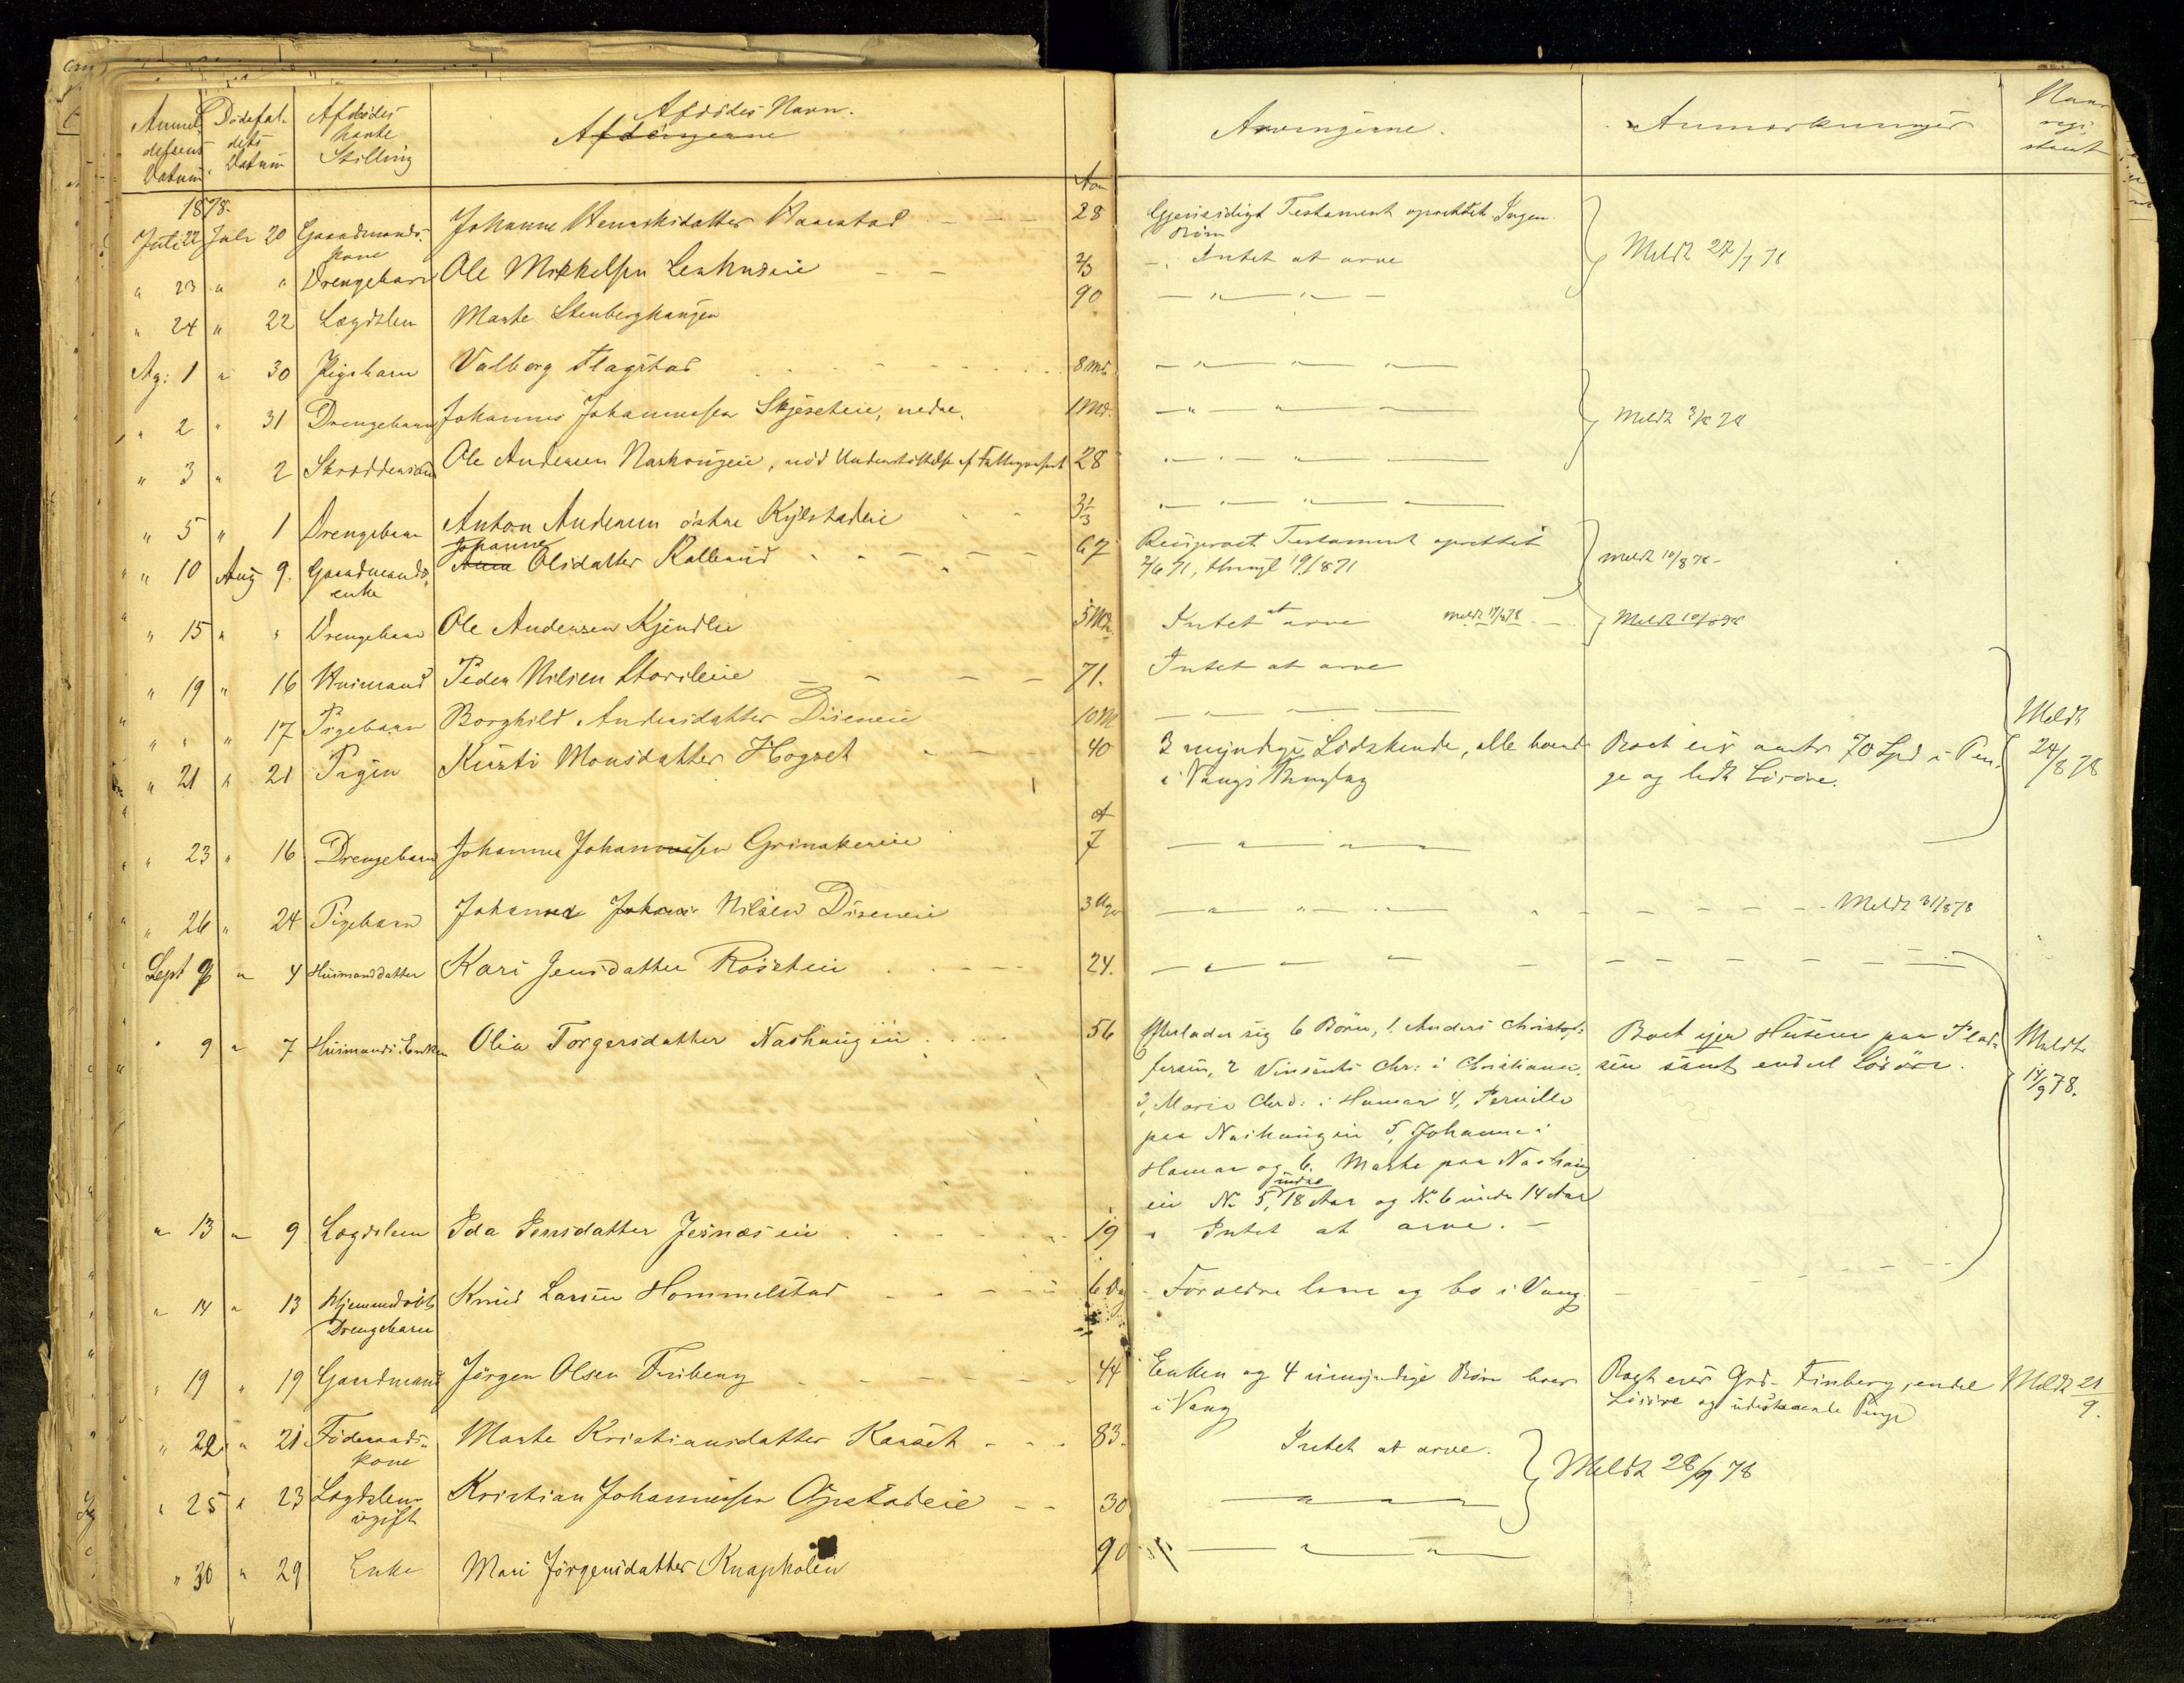 Anmeldelsens Datum Dødsfaldets Datum Afdødes havte Stilling Afdødes Navn. Aar Arvingerne. Anmærkninger
1878.
Juli 22 Juli 20 Gaardmands- Johanne Henriksdatter 28 Gjensidigt Testament oprettet. Ingen
kone Børn
" 23 " " Drengebarn Ole Mikkelsen 2/3 - Intet at arve Meldt 27/7 78
" 24 " 22 Lægdslem Marthe Stenberghaugen 90 — " — " —
Ag: 1 " 30 Pigebarn Valborg Flagstad 8 Md. — " — " —
" 2 " 31 Drengebarn Johannes Johannessen Skjeseteie, nedre. 1 Md. — " — " — Meldt 3/8 78
" 3 " 2 Ole Andersen Nashougeie, nød Understøttelse af Fattigvæsenet 28 — " — " —
" 5 " 1 Drengebarn Anton Andersen østre Kylstadeie 3 1/3 — " — " —
Johanne
" 10 Aug 9. Gaardmands- Anna Olsdatter 67 Reciproct Testament oprettet Meldt 10/8 78
enke 2/6 71, thingl 19/8 71
" 15 " " Drengebarn Ole Andersen Kjendlie 5 Md. Intet at arve Meldt 17/8 78 Meldt 10/8 78
" 19 " 16 Husmand Peder Nilsen 71. Intet at arve
" " " 17 Pigebarn Borghild Andersdatter Diseneie 10 M — " — Meldt
" 21 " 21 Pigen Kirsti Monsdatter Hogset 40 3 myndige Lødskende, alle boende Boet eier omtr 70 Spd i Pen- 24/8 78
i Vangs Thinglag ge og lidt Løsøre.
" 23 " 16 Drengebarn Johannes Johannesen Grimakereie 7 — " — " —
" 26 " 24 Pigebarn Johanna Nilsen Diseneie 3 Uger — " — " — " Meldt 31/8 78
Sept 6 " 4 Husmandsdatter Kari Jensdatter 24. — " — " —
" 9 " 7 Husmands Enken Olia Torgersdatter Nashaugeie 56 Efterlader sig 6 Børn, 1. Anders Christof- Boet ejer Husene paa Plad- Meldt
fersen, 2 Vinsents Chr: i Christiania, sen samt endeel Løsøre. 14/9 78.
3, Maria Chrd: i Hamar 4, Pernille
paa Nashaugeie 5, Johanne i
Hamar og 6. Marthe paa Nashaug
eie No 5, under 18 Aar og No 6 under 14 Aar
" 13 " 9 Lægdslem Ida Jensdatter Jesnæseie 19 " Intet at arve. -
" 14 " 13 Drengebarn Knud Larsen Hommelstad 6 Dag - Forældre leve og bo i Vang.
" 19 " 19 Gaardmand Jørgen Olsen Finberg 44 Enken og 4 umyndige Børn boer Boet eier Grd. Finberg, endel Meldt 21/9.
i Vang Løsøre og udestaaende Penge
" 22 " 21 Føderaads- Marte Kristiansdatter Kaaset 83. Intet at arve. Meldt 28/9 78
kone
" 25 " 23 Lægdslem Kristian Johannessen Opstadeie 30 — " — " —
ugift
" 30 " 29 Enke Mari Jørgensdatter Knapholen 90 — " — " —